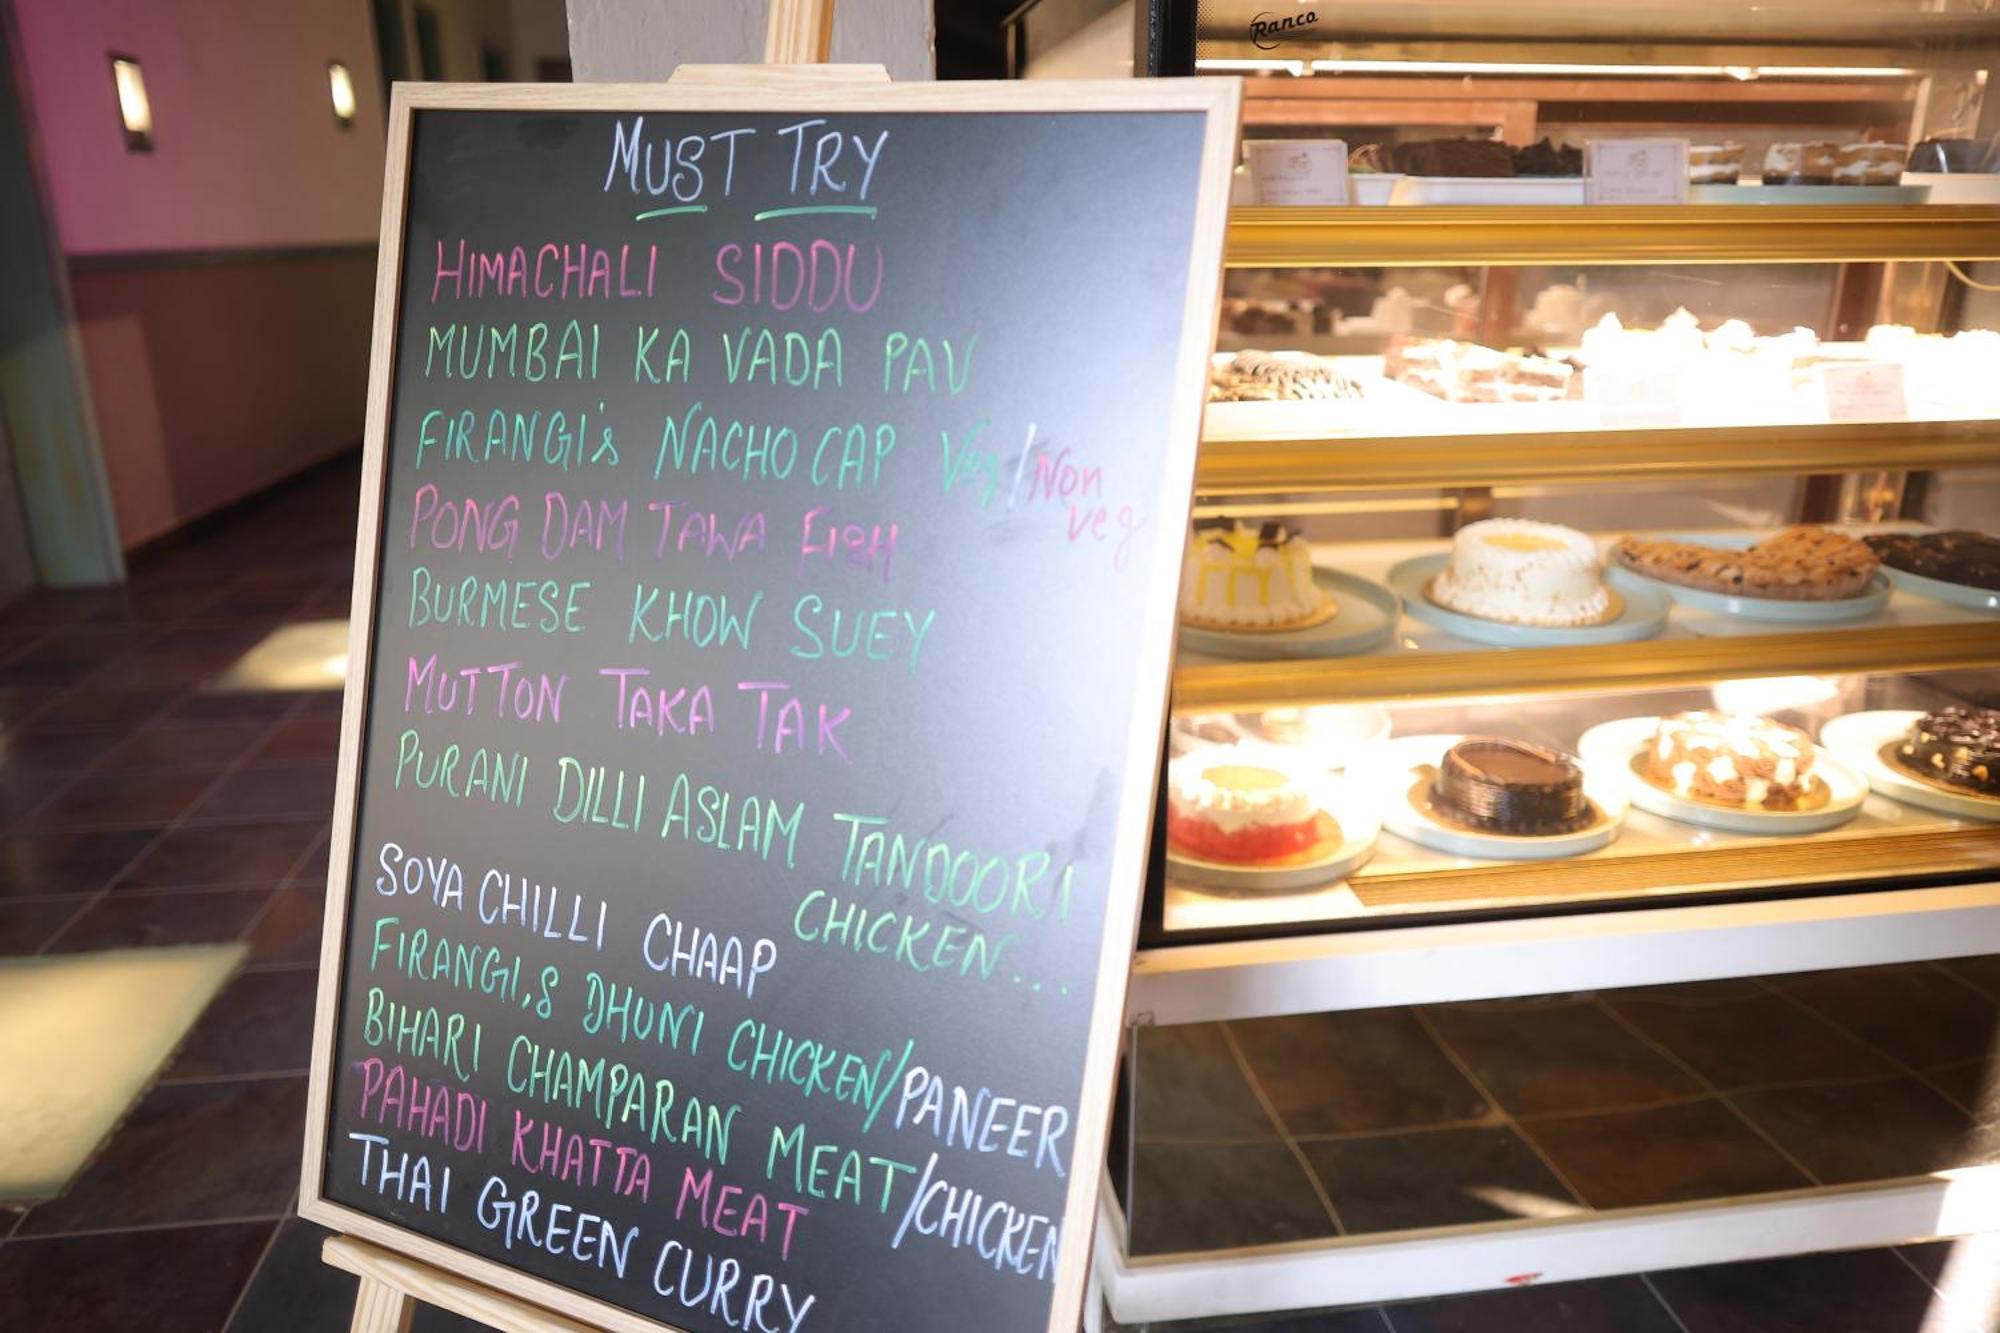 Ranco
MUST TRY
HIMACHALI SIDDU
MUMBAI KA VADA PAV
FIRANGI's NACHO CAP Veg/Non
veg
PONG DAM TAWA FISH
BURMESE KHOW SUEY
MUTTON TAKA TAK
PURANI DILLI ASLAM TANDOORI
CHICKEN...
SOYA CHILLI CHAAP
FIRANGI,S DHUNI CHICKEN/PANEER
BIHARI CHAMPARAN MEAT/CHICKEN
PAHADI KHATTA MEAT
THAI GREEN CURRY